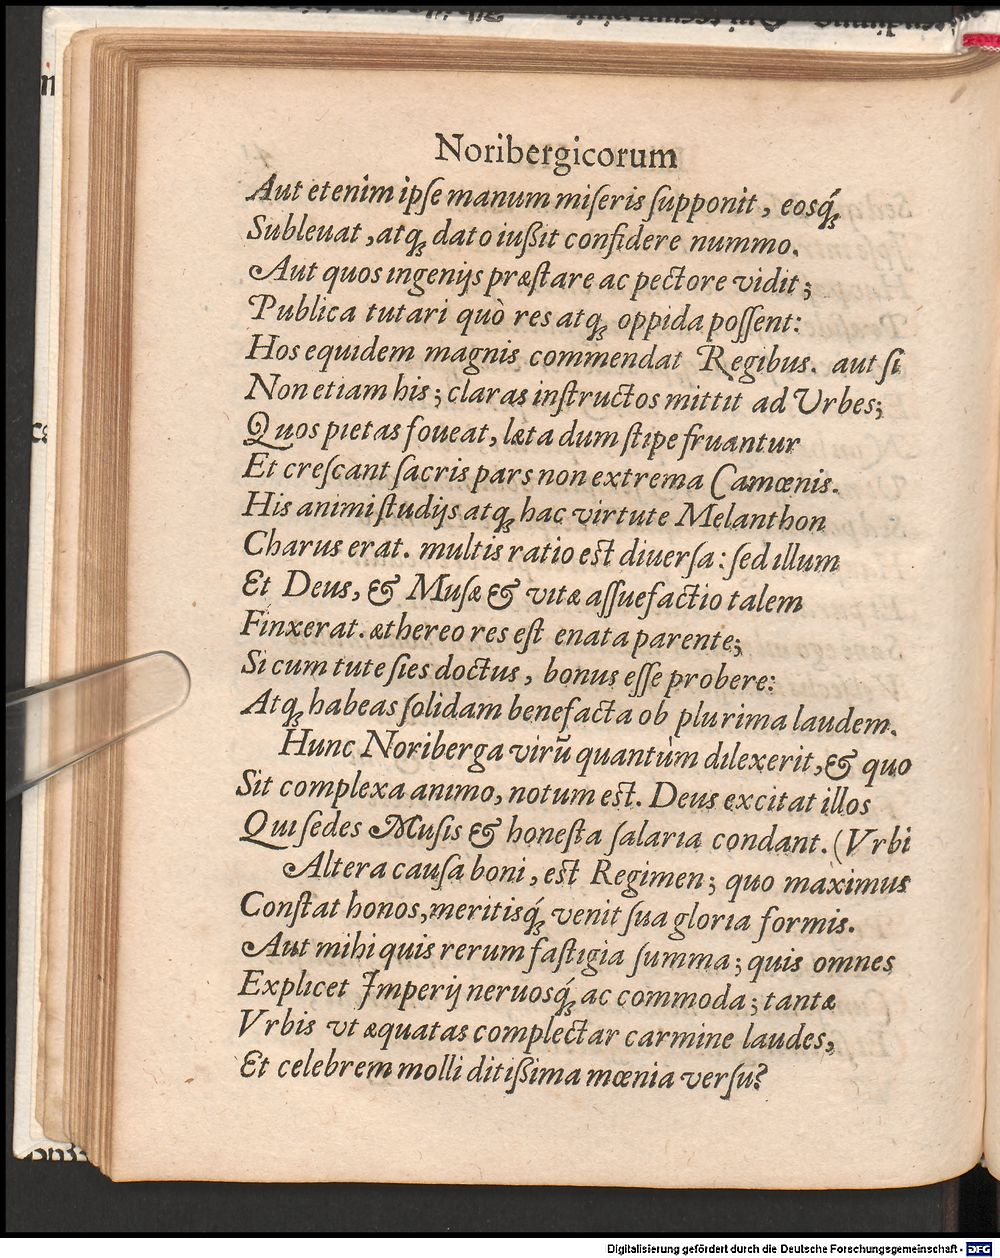 Noribergicorum
Aut etenim ipſe manum miſeris ſupponit, eosq́ꝫ
Subleuat, atqꝫ dato iußit confidere nummo.
Aut quos ingenijs præſtare ac pectore vidit;
Publica tutari quò res atqꝫ oppida poſſent:
Hos equidem magnis commendat Regibus. aut ſi
Non etiam his; claras inſtructos mittit ad Vrbes;
Quos pietas foueat, læta dum ſtipe fruantur
Et creſcant ſacris pars non extrema Camœnis.
His animi ſtudijs atqꝫ hac virtute Melanthon
Charus erat. multis ratio est diuerſa: ſed illum
Et Deus, & Muſæ & vitæ aſſuefactio talem
Finxerat. æthereo res eſt enata parente;
Si cum tute ſies doctus, bonus eſſe probere:
Atqꝫ habeas ſolidam benefacta ob plurima laudem.
Hunc Noriberga virū quantùm dilexerit, & quo
Sit complexa animo, notum est. Deus excitat illos
Qui ſedes Muſis & honeſta ſalaria condant. (Vrbi
Altera cauſa boni, est Regimen; quo maximus
Conſtat honos, meritisq́ꝫ venit ſua gloria formis.
Aut mihi quis rerum faſtigia ſumma; quis omnes
Explicet Imperij neruosq́ꝫ ac commoda; tantæ
Vrbis vt æquatas complectar carmine laudes,
Et celebrem molli ditißima mœnia verſu?
Digitalisierung gefördert durch die Deutsche Forschungsgemeinschaft - DFG